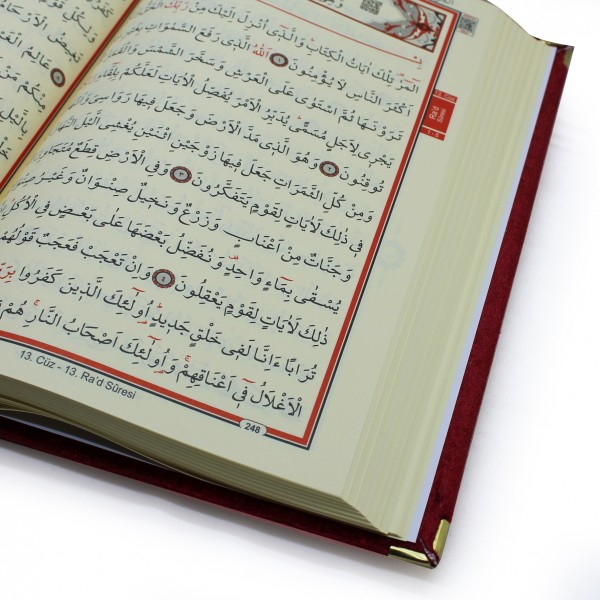 الٓمٓرٰ تِلْكَ اٰيَاتُ الْكِتَابِ وَالَّذ۪ٓي اُنْزِلَ اِلَيْكَ مِنْ رَبِّكَ
اَكْثَرَ النَّاسِ لَا يُؤْمِنُونَ ١ اَللّٰهُ الَّذ۪ي رَفَعَ السَّمٰوَاتِ
تَرَوْنَهَا ثُمَّ اسْتَوٰى عَلَى الْعَرْشِ وَسَخَّرَ الشَّمْسَ
يَجْر۪ي لِاَجَلٍ مُسَمًّى يُدَبِّرُ الْاَمْرَ يُفَصِّلُ الْاٰيَاتِ لَعَلَّكُمْ بِلِقَٓاءِ
تُوقِنُونَ ٢ وَهُوَ الَّذ۪ي مَدَّ الْاَرْضَ وَجَعَلَ ف۪يهَا رَوَاسِيَ
وَمِنْ كُلِّ الثَّمَرَاتِ جَعَلَ ف۪يهَا زَوْجَيْنِ اثْنَيْنِ يُغْشِي الَّيْلَ
ف۪ي ذٰلِكَ لَاٰيَاتٍ لِقَوْمٍ يَتَفَكَّرُونَ ٣ وَفِي الْاَرْضِ قِطَعٌ
وَجَنَّاتٌ مِنْ اَعْنَابٍ وَزَرْعٌ وَنَخ۪يلٌ صِنْوَانٌ وَغَيْرُ
يُسْقٰى بِمَٓاءٍ وَاحِدٍ وَنُفَضِّلُ بَعْضَهَا عَلٰى بَعْضٍ فِي الْاُكُلِ
ذٰلِكَ لَاٰيَاتٍ لِقَوْمٍ يَعْقِلُونَ ٤ وَاِنْ تَعْجَبْ فَعَجَبٌ قَوْلُهُمْ
تُرَابًا ءَاِنَّا لَف۪ي خَلْقٍ جَد۪يدٍ اُو۬لٰٓئِكَ الَّذ۪ينَ كَفَرُوا
الْاَغْلَالُ ف۪ٓي اَعْنَاقِهِمْ وَاُو۬لٰٓئِكَ اَصْحَابُ النَّارِ هُمْ
13. Cüz - 13. Ra'd Sûresi
248
Ra'd
Sûresi